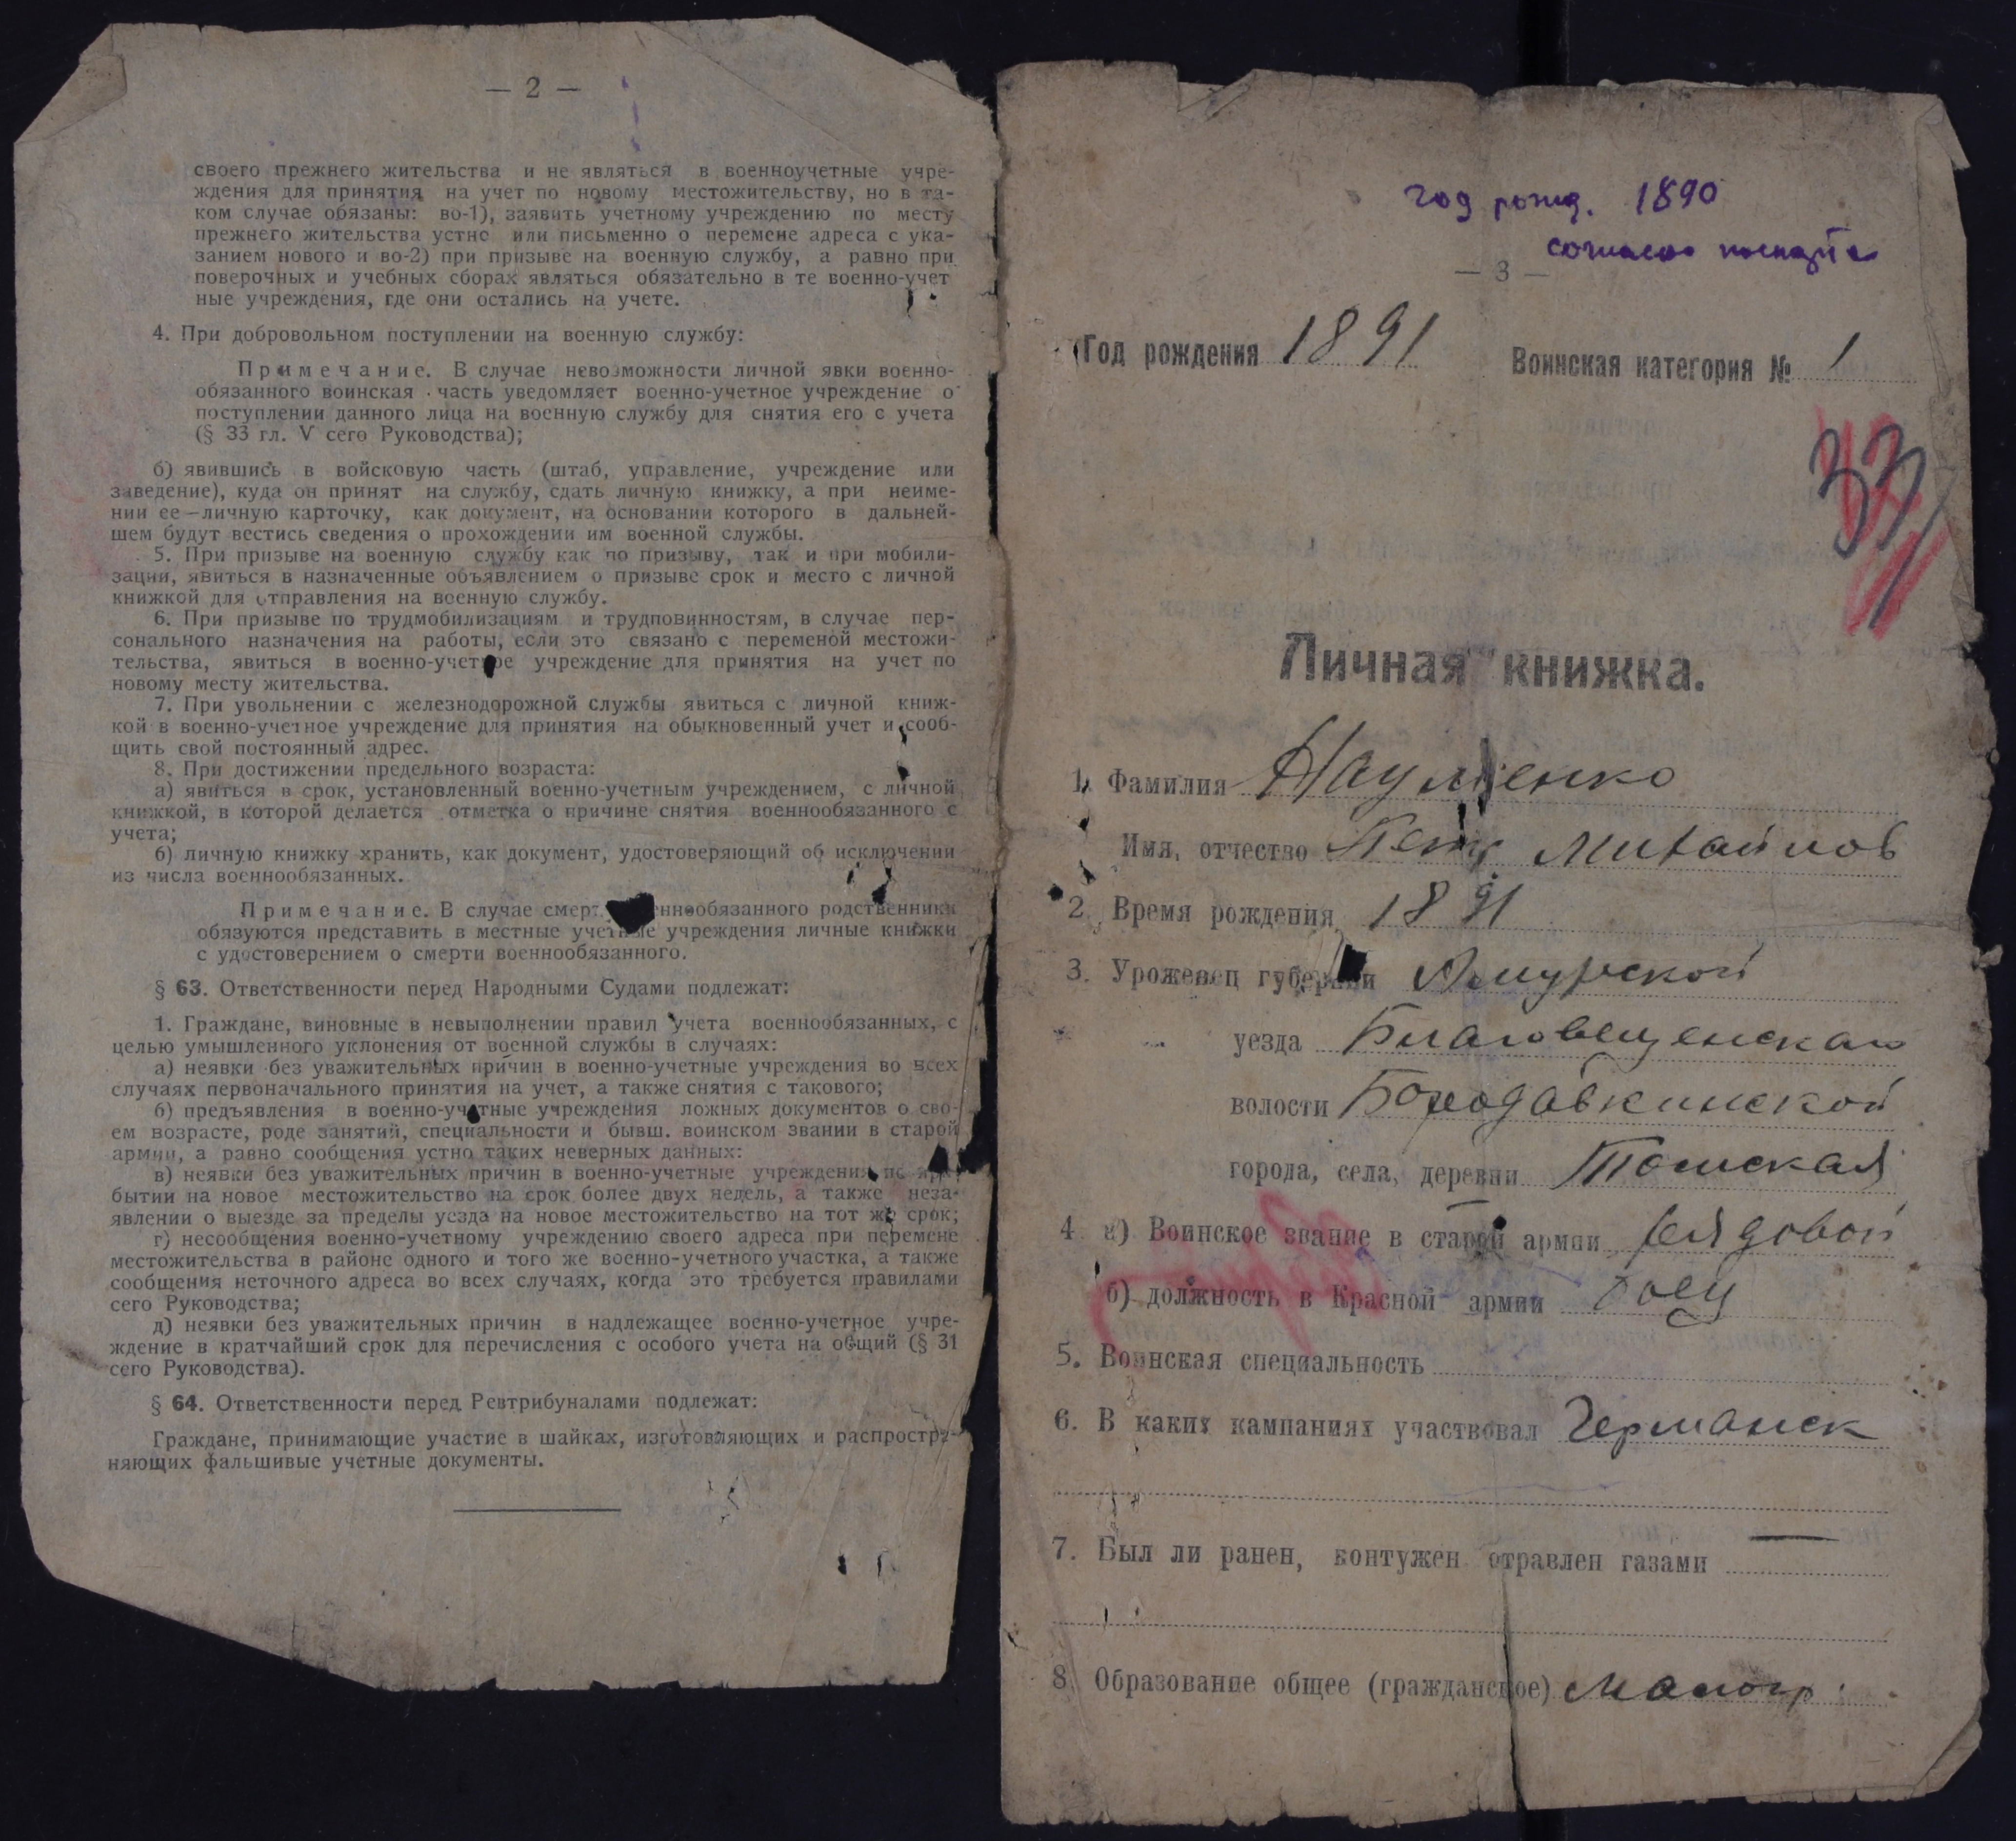 — 2 —
своего прежнего жительства и не являться в военноучетные учре-
ждения для принятия на учет по новому местожительству, но в та-
ком случае обязаны: во-1), заявить учетному учреждению по месту
прежнего жительства устно или письменно о перемене адреса с ука-
занием нового и во-2) при призыве на военную службу, а равно при
поверочных и учебных сборах являться обязательно в те военно-учет
ные учреждения, где они остались на учете.
4. При добровольном поступлении на военную службу:
Примечание. В случае невозможности личной явки военно-
обязанного воинская часть уведомляет военно-учетное учреждение о
поступлении данного лица на военную службу для снятия его с учета
(§ 33 гл. V сего Руководства);
б) явившись в войсковую часть (штаб, управление, учреждение или
заведение), куда он принят на службу, сдать личную книжку, а при неиме-
нии ее—личную карточку, как документ, на основании которого в дальней-
шем будут вестись сведения о прохождении им военной службы.
5. При призыве на военную службу как по призыву, так и при мобили-
зации, явиться в назначенные объявлением о призыве срок и место с личной
книжкой для отправления на военную службу.
6. При призыве по трудмобилизациям и трудповинностям, в случае пер-
сонального назначения на работы, если это связано с переменой местожи-
тельства, явиться в военно-учетное учреждение для принятия на учет по
новому месту жительства.
7. При увольнении с железнодорожной службы явиться с личной книж-
кой в военно-учетное учреждение для принятия на обыкновенный учет и сооб-
щить свой постоянный адрес.
8. При достижении предельного возраста:
а) явиться в срок, установленный военно-учетным учреждением, с личной
книжкой, в которой делается отметка о причине снятия военнообязанного с
учета;
б) личную книжку хранить, как документ, удостоверяющий об исключении
из числа военнообязанных.
Примечание. В случае смерт ннообязанного родственники
обязуются представить в местные учетные учреждения личные книжки
с удостоверением о смерти военнообязанного.
§ 63. Ответственности перед Народными Судами подлежат:
1. Граждане, виновные в невыполнении правил учета военнообязанных, с
целью умышленного уклонения от военной службы в случаях:
а) неявки без уважительных причин в военно-учетные учреждения во всех
случаях первоначального принятия на учет, а также снятия с такового;
б) предъявления в военно-учетные учреждения ложных документов о сво-
ем возрасте, роде занятий, специальности и бывш. воинском звании в старой
армии, а равно сообщения устно таких неверных данных:
в) неявки без уважительных причин в военно-учетные учреждения по при-
бытии на новое местожительство на срок более двух недель, а также неза-
явлении о выезде за пределы уезда на новое местожительство на тот же срок;
г) несообщения военно-учетному учреждению своего адреса при перемене
местожительства в районе одного и того же военно-учетного участка, а также
сообщения неточного адреса во всех случаях, когда это требуется правилами
сего Руководства;
д) неявки без уважительных причин в надлежащее военно-учетное учре-
ждение в кратчайший срок для перечисления с особого учета на общий (§ 31
сего Руководства).
§ 64. Ответственности перед Ревтрибуналами подлежат:
Граждане, принимающие участие в шайках, изготовляющих и распростра-
няющих фальшивые учетные документы.
год рожд. 1890
согласно паспорта
— 3 —
Год рождения 1891 Воинская категория № 1
Личная книжка.
1. Фамилия Науменко
Имя, отчество Петр Михайлов
2. Время рождения 1891
3. Уроженец губернии Амурской
уезда Благовещенскаго
волости Бородавкинской
города, села, деревни Томская
4 а) Воинское звание в старой армии рядовой
б) должность в Красной армии боец
5. Воинская специальность
6. В каких кампаниях участвовал Германск
7. Был ли ранен, контужен отравлен газами —
8 Образование общее (гражданское) малогр.